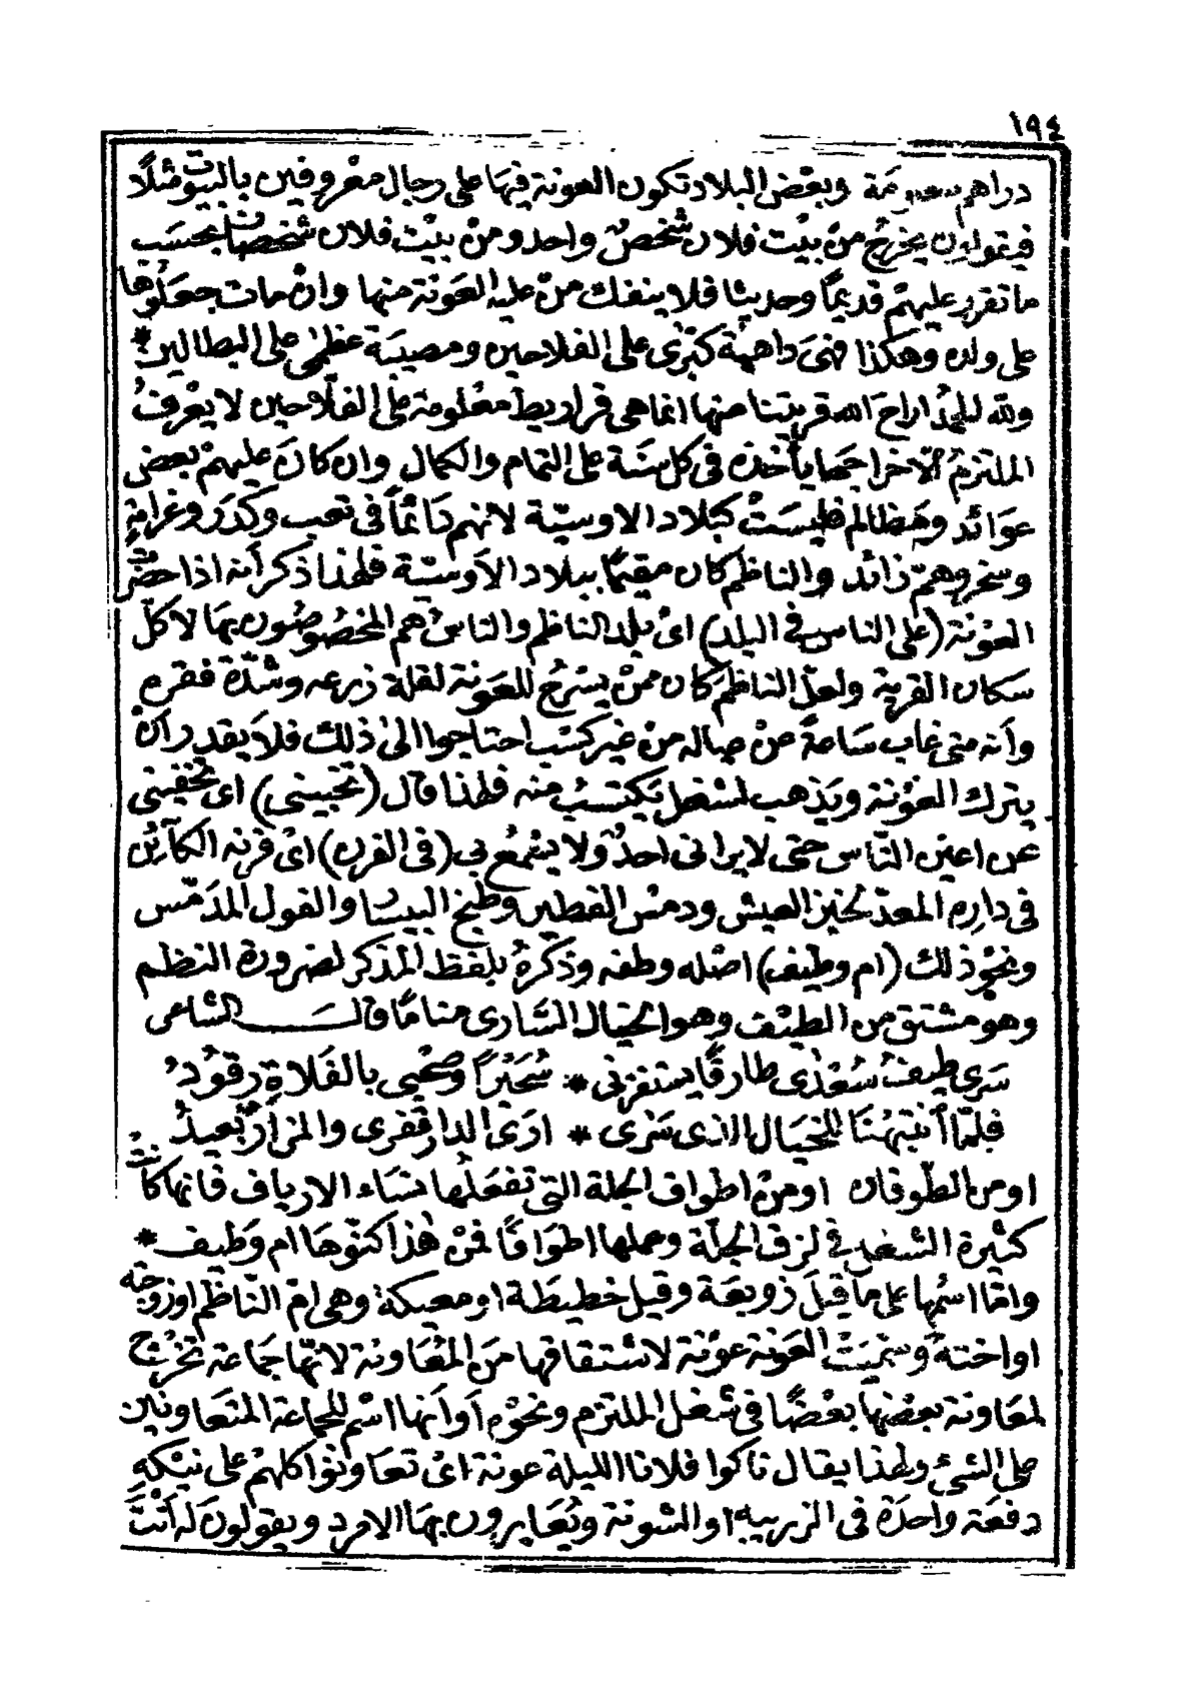 ١٩٤
دراهم معلومة وبعض البلاد تكون العونة فيها على رجال معروفين بالبيوت مثلًا
فيقولون يخرج من بيْت فلان شخصٌ واحد ومن بيْت فلان شخصان بحسَب
ما تقرر عليهمْ قديمًا وحديثا فلا ينفك منْ عليه العَونة منها وانْ مات جعلوها
على ولده وهكذا فهىَ داهيَة كبْرى على الفلاحين ومصيبَة عظمٰى على البطالين *
ولله الحمدُ اراحَ الله قريتنا منها انما هى قراريط معْلومة على الفلّاحين لا يعْرفُ
الملتزمُ الّا خراجها يأخذه فى كل سنَة على التمام والكمال وان كانَ عليهمْ بعض
عوَائد ومظالم فليسَتْ كبلاد الاوسيّة لانهم دَائمًا فى تعب وكدَر وغرامةٍ
وسخر وهمّ زائد والناظم كان مقيمًا ببلاد الأوسيّة فلهذا ذكر أنه اذا حضرت
العوْنة (على الناس فى البلد) اىْ بلد الناظم والناسُ هم المخصُوصُون بها لا كلّ
سكان القرية ولعلّ الناظم كان ممنْ يسْرحُ للعَونة لقلة زرعه وشدّة فقره
وأنه متى غاب سَاعةً عنْ عياله منْ غير كسْب احتاجوا الىٰ ذلك فلَا يقدر أنْ
يترك العوْنة ويَذهب لشغل يَكتسبُ منه فلهذا قال (تخبينى) اى تخفينى
عن اعين النّاس حتى لا يرانى احدٌ ولا يسْمع بى (فى الفرن) اىْ فرنه الكآئن
فى داره المعدّ لخبز العيش ودمسْ الفطير وطبخ البيسار والفول المدَمّس
ونحو ذلك (ام وطيف) اصْله وطفه وذكّرهُ بلفظ المذكر لضرورة النظم
وهو مشتق من الطيْف وهو الخيال السَارى منامًا قال الشاعر
سَرى طيفُ سُعْدٰى طارقًا يستفزنى * سُحَيْرًا وصُحْبى بالفَلاةِ رقوُدُ
فلمّا انْتبَهْنَا للخيَال الذى سَرٰى * ارَى الدار قفرى والمزارُ بَعيدُ
او من الطّوفان او منْ اطواف الجلة التى تفعَلُها نسَاء الارياف فانها كانتْ
كثيْرة الشغل فى لزق الجلّة وعملها اطوَافًا فمنْ هٰذا كنّوهَا ام وَطيف *
وامّا اسْمها على ما قيلَ زوبعَة وقيل خطيطَة او معيكة وهى امّ النّاظم او زوجته
او اختهُ وسمّيَتْ العَونة عوْنة لاشتقاقها منَ المُعَاونة لانهّا جَمَاعة تخرُج
لمعَاونة بعضها بعْضًا فى شغل الملتزم ونحْوه أو أنها اسْم للجماعة المتعَاونين
على الشئ ولهٰذا يقال ناكوا فلانا الليلة عونة اىْ تعَاونُوا كلهُمْ على نيْكهِ
دفعَة واحدَة فى الزريبه او الشونة ويُعَايرون بهَا الامرد ويقولونَ له أنْتَ